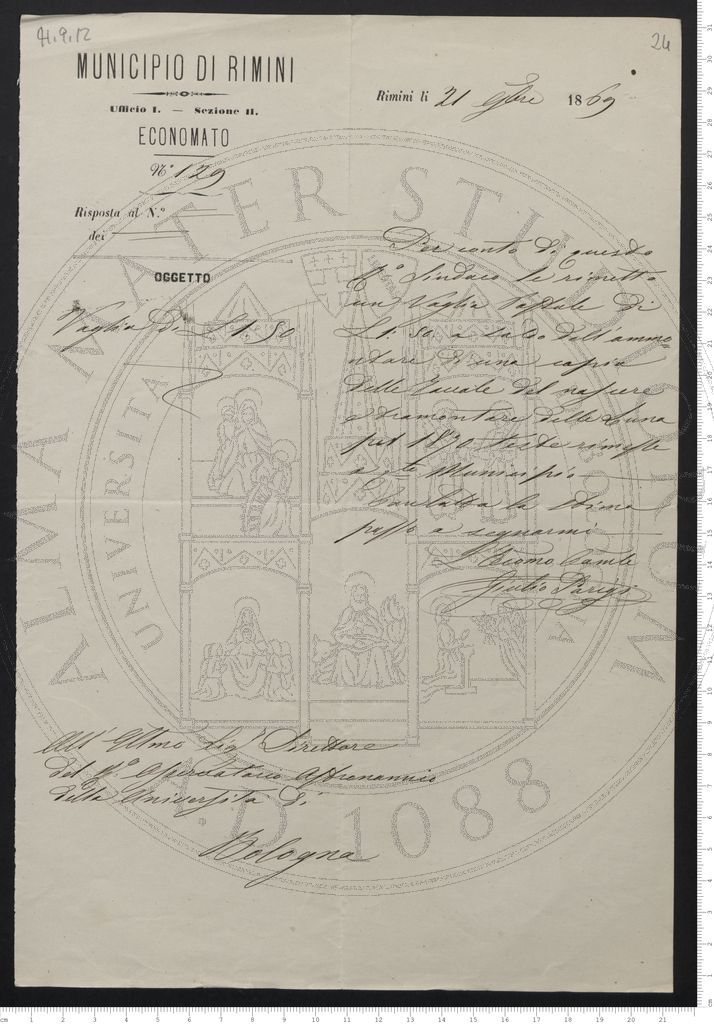 91.9.12
24
MUNICIPIO DI RIMINI
Ufficio I. — Sezione II.
ECONOMATO
N.° 129
Rimini li 21 9bre 1869
Risposta al N.°
del
OGGETTO
Vaglia di £ 1. 50
Per conto di questo
Sindaco le rimetto
un Vaglia Postale di
£ 1. 50. a saldo dell'ammo
ntare di una copia
delle Tavole del nascere
e tramontare della Luna
pel 1870 testè rimesse
a q.to Municipio
la stima
passo a segnarmi
Economo
Giulio Parigi
All' Illmo Sig.r Direttore
del R.° Osservatorio Astronomico
della Università di
Bologna
ALMA MATER STUDIORUM
A.D. 1088